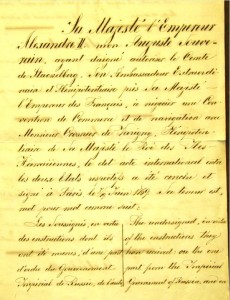 Sa Majesté l'Empereur
Alexandre II mon Auguste Souve-
rain, ayant daigné autoriser le Comte
de Stackelberg, Son Ambassadeur Extraordi-
naire et Plénipotentiaire près Sa Majesté
l'Empereur des Français, à négocier une Con-
vention de Commerce et de navigation avec
Monsieur Crosnier de Varigny, Plénipoten-
tiaire de Sa Majesté le Roi des Iles
Hawaiiennes, le dit acte international entre
les deux Etats a été conclu et
signé à Paris le Juin 1869 Sa teneur est
mot pour mot comme suit:
Les Soussignés, en vertu
des instructions dont ils
ont été munis, d'une part
d'ordre du Gouvernement
Impérial de Russie, de l'autre
The undersigned, in virtue
of the instructions they
have received: on the one
part from the Imperial
Government of Russia, and on